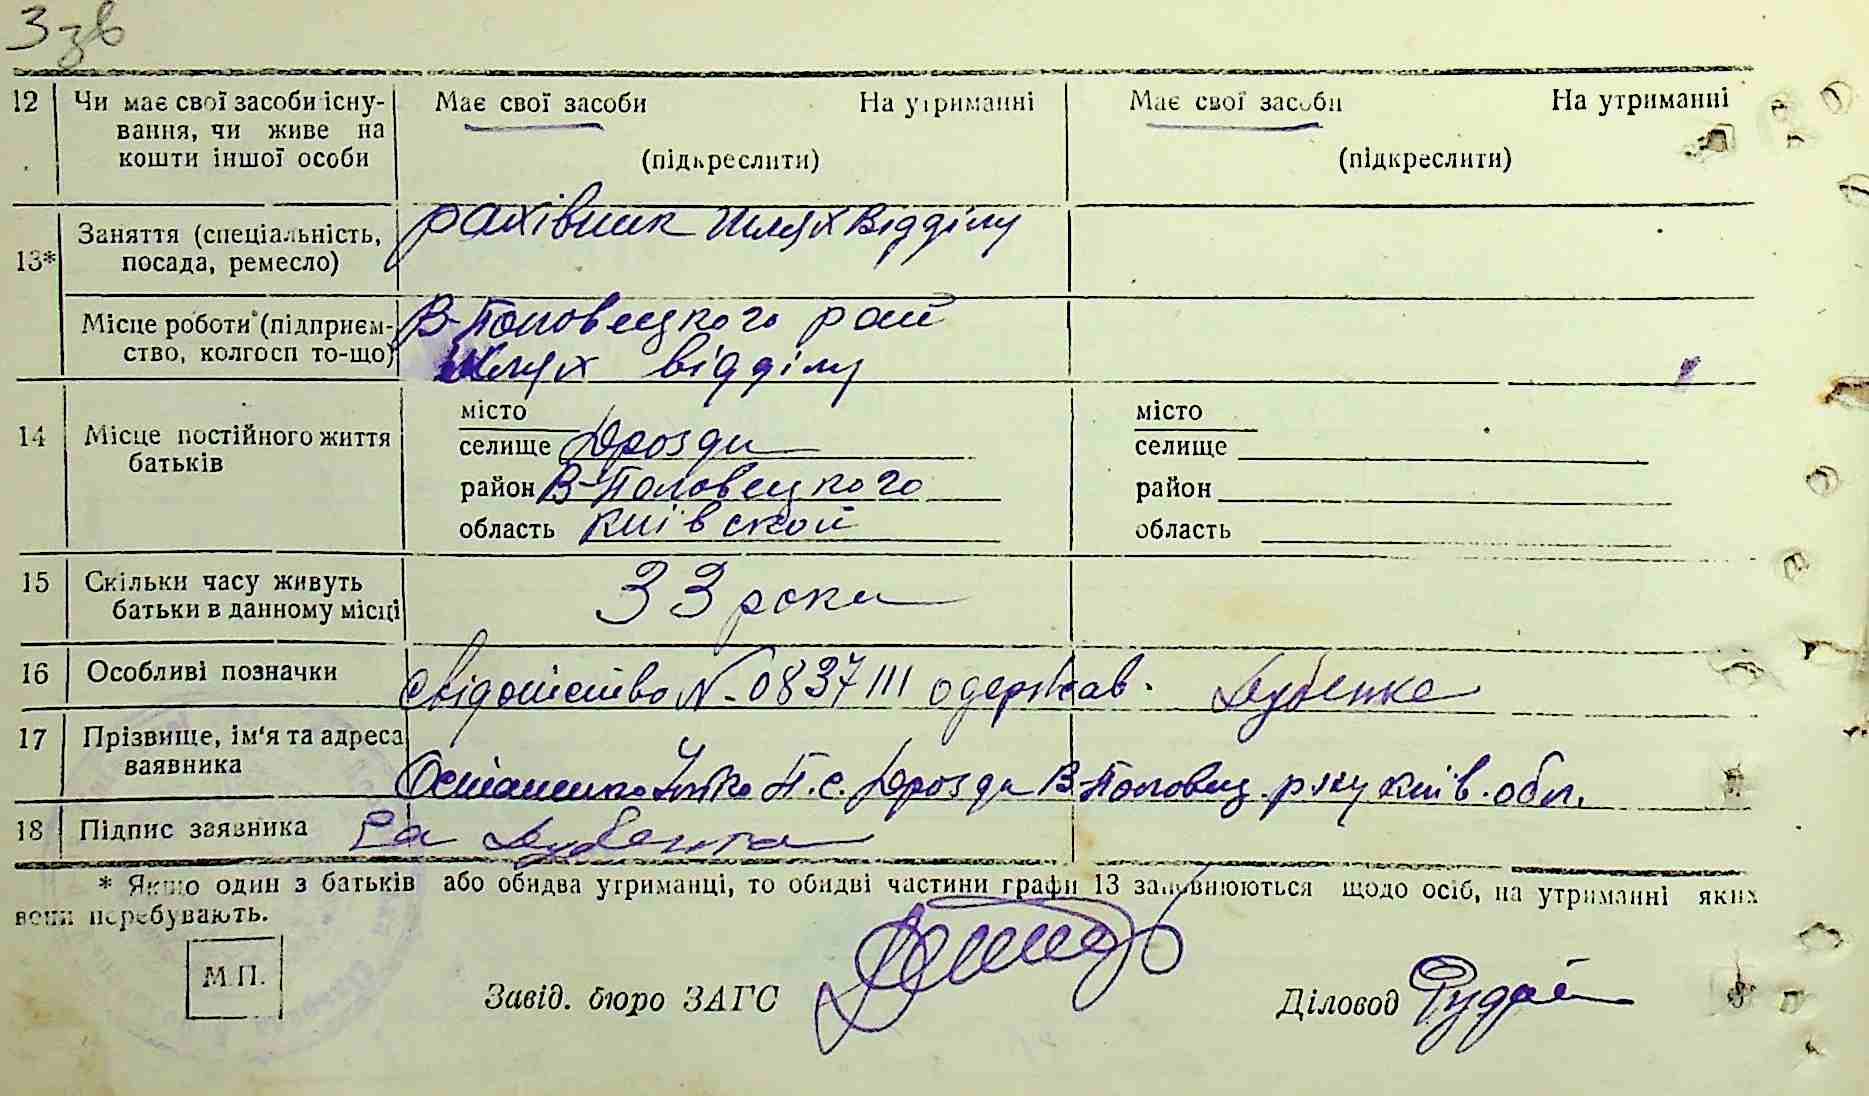 3 зв
12 Чи має свої засоби існу- Має свої засоби На утриманні Має свої засоби На утриманні
вання, чи живе на
кошти іншої особи (підкреслити) (підкреслити)
13* Заняття (спеціальність, рахівник шляхвідділу
посада, ремесло)
Місце роботи (підприєм- В-Половецкого рай
ство, колгосп то-що) шлях відділу
14 Місце постійного життя батьків місто місто
селище Дрозди селище
район В-Половецкого район
область київской область
15 Скільки часу живуть 33 роки
батьки в данному місці
16 Особливі позначки свідоцтво N-0837111 одержав.
17 Прізвище, ім'я та адреса
заявника П. с. Дрозди В-Половец. р-ну київ. обл.
18 Підпис заявника
* Якщо один з батьків або обидва утриманці, то обидві частини графи 13 заповнюються щодо осіб, на утриманні яких
вони перебувають.
М.П.
Завід. бюро ЗАГС Діловод